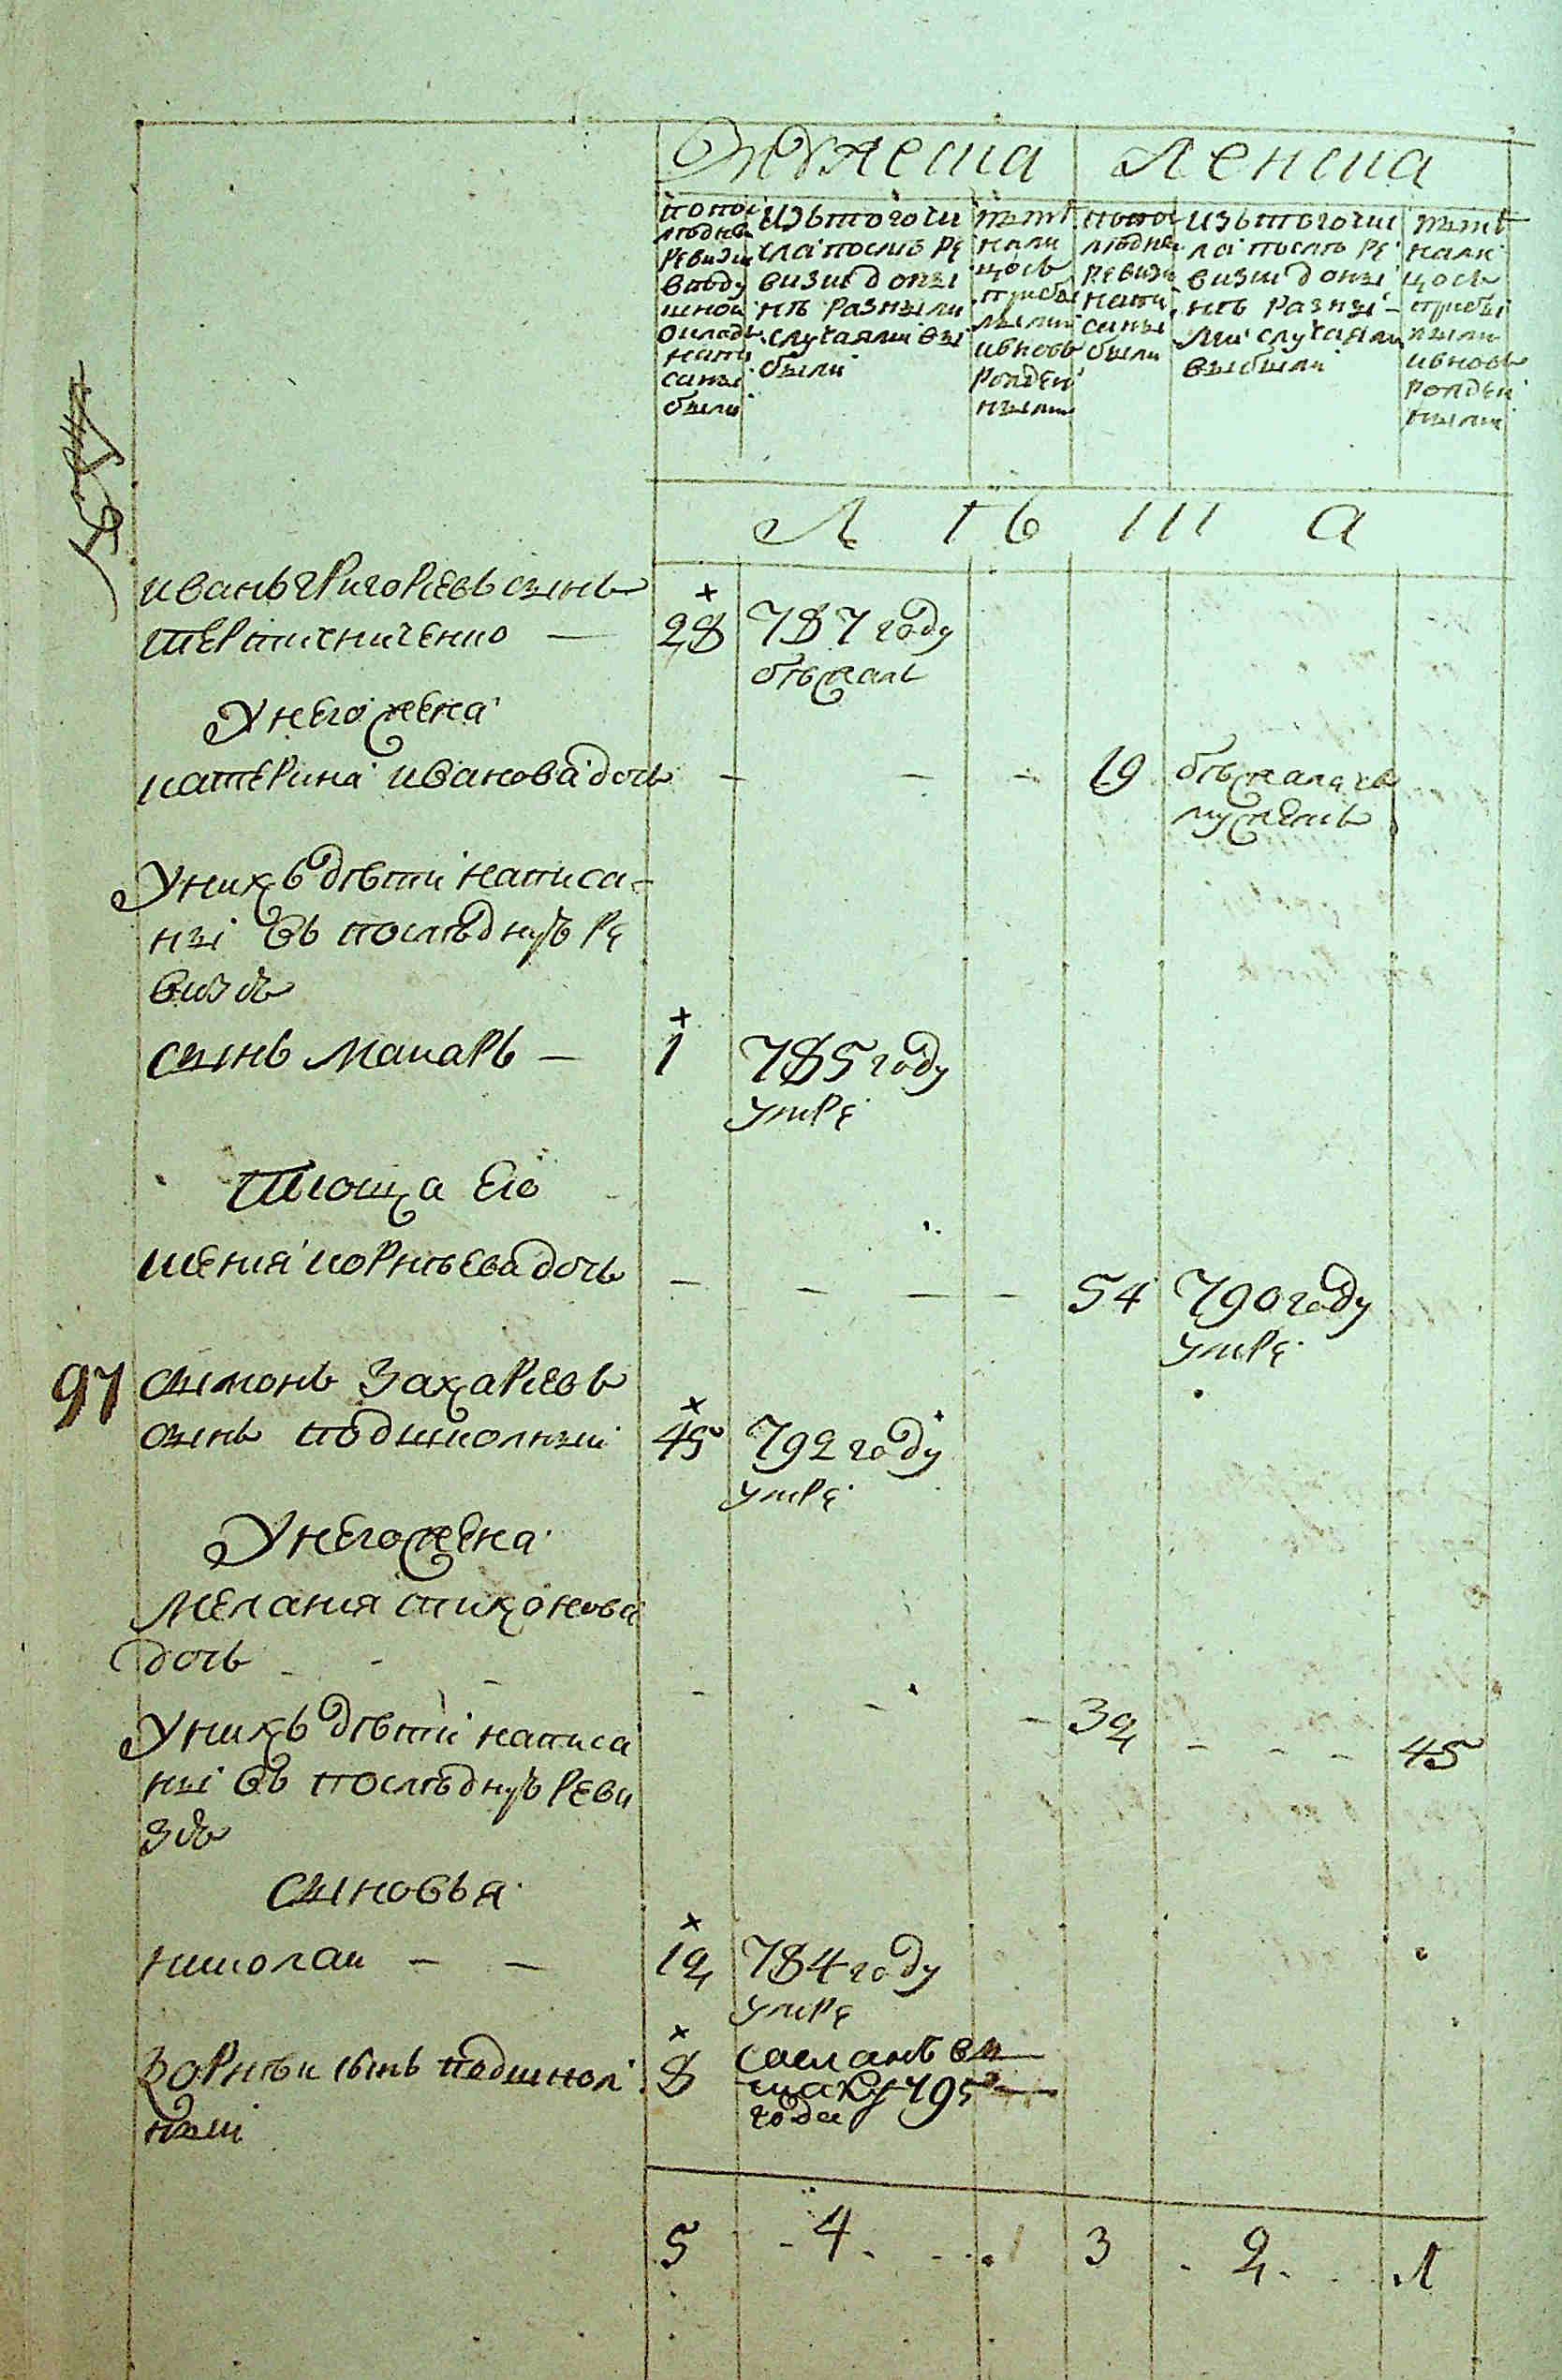 Мужеска Женска
по пос
ледней
ревизи
в поду
шной
окладъ
напи
саны
были
Изъ того чи
сла после ре
визии до ны
нѣ разными
случаями вы
были
теперь
нали
цось
прибы
лыми
и вновь
рожден
ными
по пос
ледней
ревизи
напи
саны
были
изъ того чис
ла после ре
визии до ны
нѣ разны
ми случаями
выбыли
нали
цось
прибы
лыми
и вновь
рожден
ными
Лѣта
иванъ григорьевъ сынъ
терпиченко — 28 787 году
бѣжалъ
У него жена
катерина иванова дочь — — — 19 бѣжала съ
мужемъ
У нихъ дѣти написа-
ны въ последную ре
визию
сынъ макаръ — 1 785 году
умре
Тюща его
шения корнѣева дочь — — — — 54 790 году
умре
97 симонъ захариевъ
сынъ подшколный 45 792 году
умре
У него жена
Мелания тихонова
дочь — — — 32 — — — 45
У нихъ дѣти написа
ны въ последную реви
зию
сыновья
николаи — — 12 784 году
умре
корнѣи сынъ подшкол
ный 8 795
года
5 4 1 3 2 1